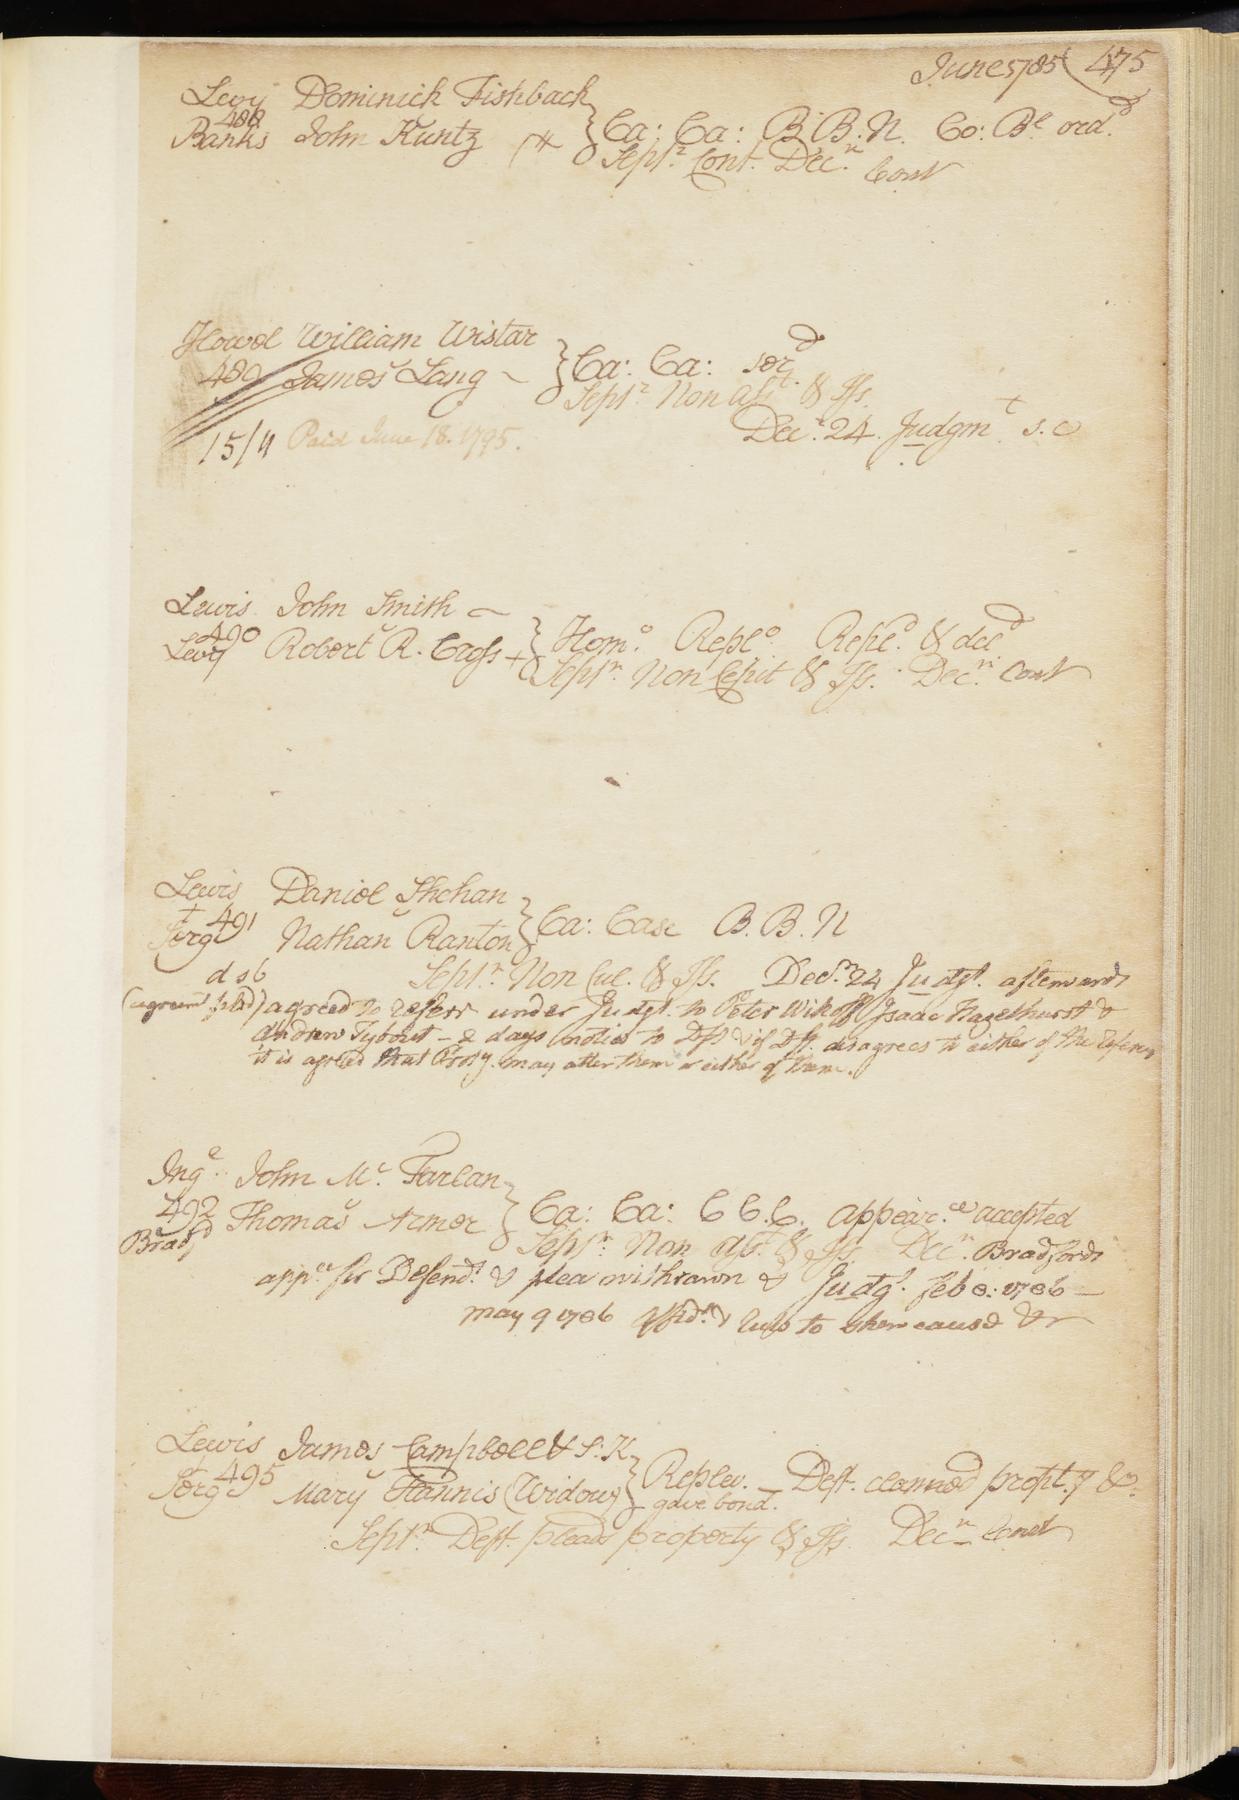 June 1785 475
Levy Dominick Fishback
488
Banks John Kuntz } Ca: Ca: B. B. N. Co: Bl ord.
Sept.r Cont. Dec.r Cont
Howel William Wistar
489 James Lang } Ca: Ca: sord
Sept.r Non Ass & Iss.
Dec.r 24. Judgmt s. c
15/4 Paid June 18. 1795.
Lewis John Smith
490
Levy Robert R. Cross } Hom.o Repl.o Repl.d & deld
Sept.r Non Cepit & Iss. Dec.r Cont
Lewis Daniel Shehan
491
Serg.t Nathan Ranton } Ca: Case B. B. N
dsb Sept.r Non Cul. & Iss. Dec.r 24 Judgt. afterwards
(agreemt filed) agreed to referr under Judgt. to Peter Wikoff Isaac Hazelhurst &
Andrew Tybout - 2 days notice to Deft & if Dft. disagrees to either of the Referees
it is agreed that Prothy. may alter them or either of them.
Ing.l John Mc. Farlan
492 Thomas Armor } Ca: Ca: C C. C. appear.ce accepted
Bradfd Sept.r Non Ass. & Iss. Dec.r Bradford
app.ce for Defend.t & plea withrawn & Judgt. feb 8: 1786 —
may 9 1786 Affid.t & rule to shew cause &c
Lewis James Campbell & S. K
495
Serg.t Mary Hannis (Widow) } Replev. — Deft. claimed propt.y &c.
gave bond.
Sept.r Deft. pleads property & Iss. Dec.r Cont